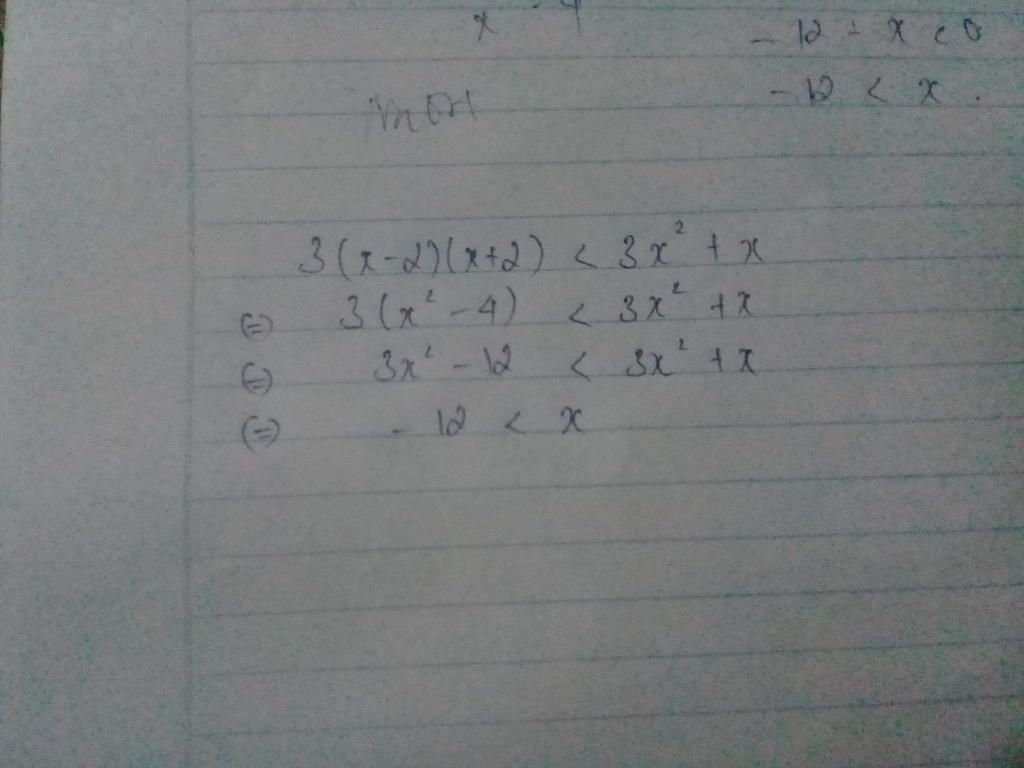 - 12 - x < 0
- 12 < x .
3(x-2)(x+2) < 3x² + x
(=) 3(x² - 4) < 3x² + x
(=) 3x² - 12 < 3x² + x
(=) - 12 < x